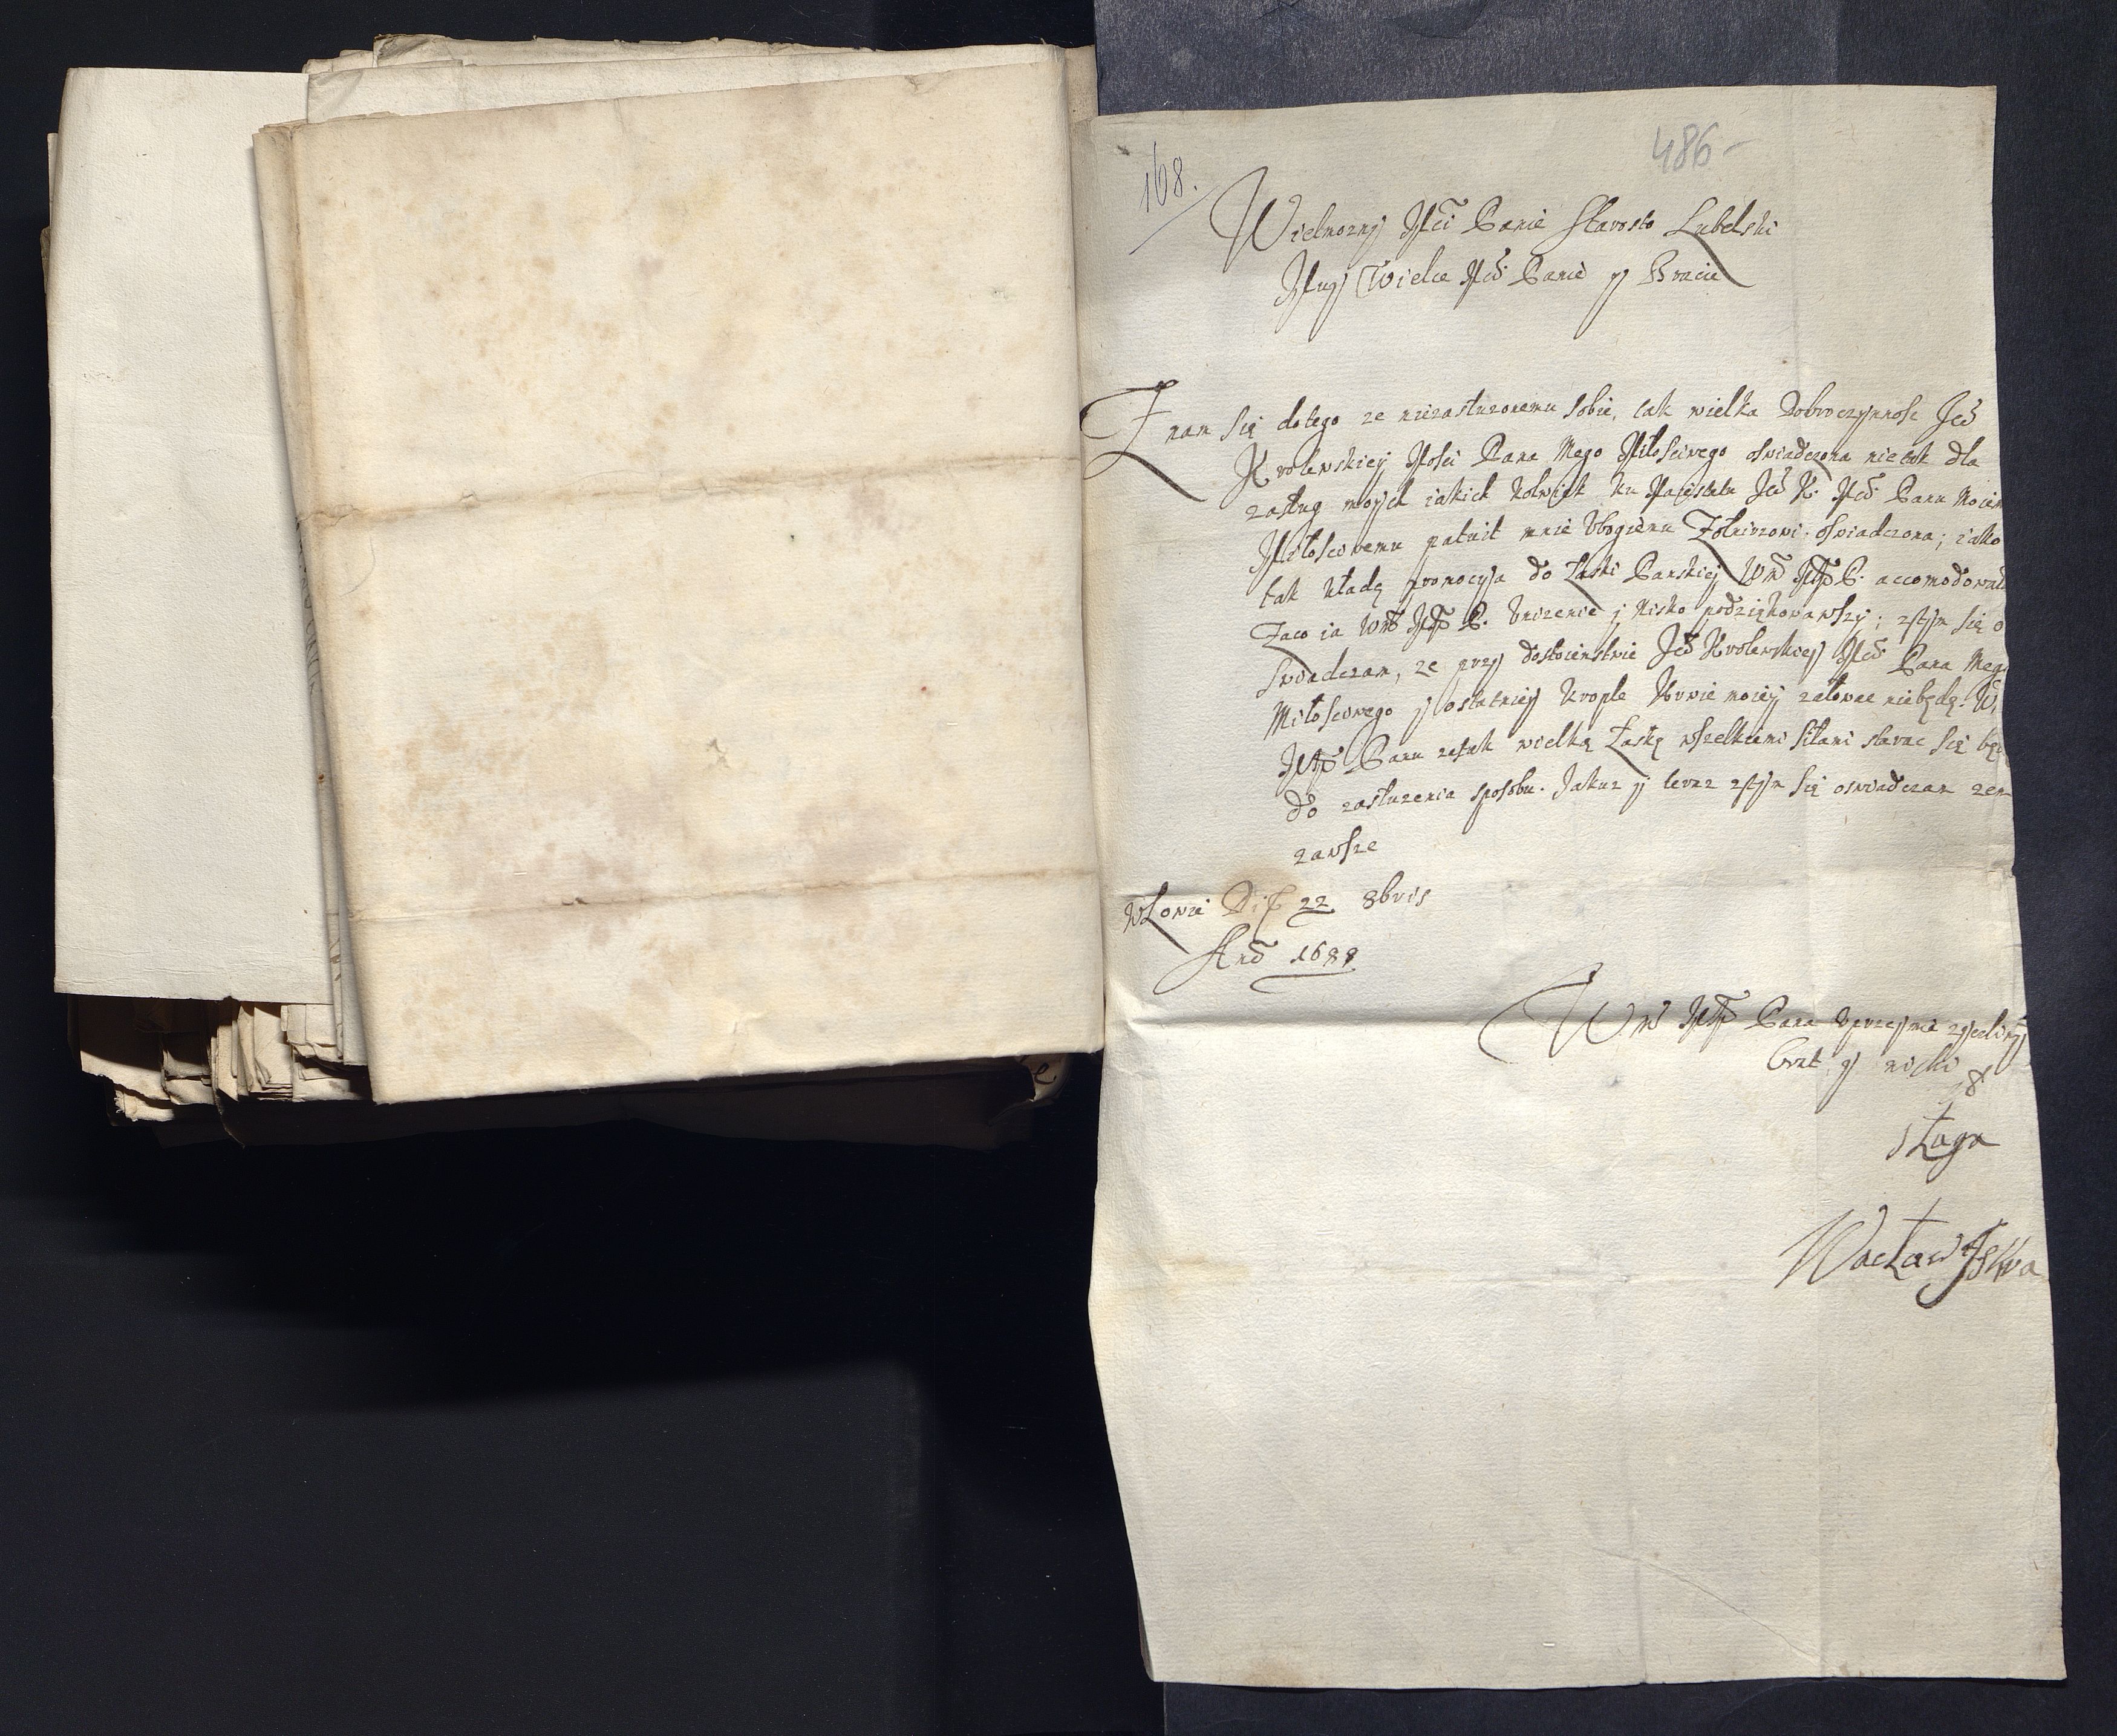 168.
486-
Wielmozny Mći Panie Starosto Lubelski
Muy Wielce Mćĩ Panie y Bracie
Znam Się dotego ze niezasłuzonemu sobie, tak wielka Dobroczynnosc Je͠o
Krolewskiey Mosci Pana Mego Miłosciwego oswiadczona nie tak dla
zasług moych iakich kolwiek ku Maiestatu Je͠o K. Mći Panu Moiem
Miłosciwemu mnie Vbogiemu Zołnirzowi oswiadczona; iako
tak promocyja do Łaski Panskiey Wm̃ MMP P. accomodował
Zaco ia Wm̃ MMP P. Vnizenie y Nisko podziękowawszy; zstym się o
swiadczam, ze przy dostoienstwie Je͠o Krolewskiey Mći Pana Mego
Miłosciwego y ostatniey krople krwie moiey załowac niebędę. W,
MMP Panu zatak wielką Łaskę wszelkiemi siłami starac się będ
do zasłuzenia sposobu. Jakuz y teraz zstym się oswiadczam zem
zawsze
wLowie Die 22 8bris
Ann̄o 1688
Wm̃ MMP Pana Vprzeymie zyczliwy
brat y niski
sługa
Wacław Iskra